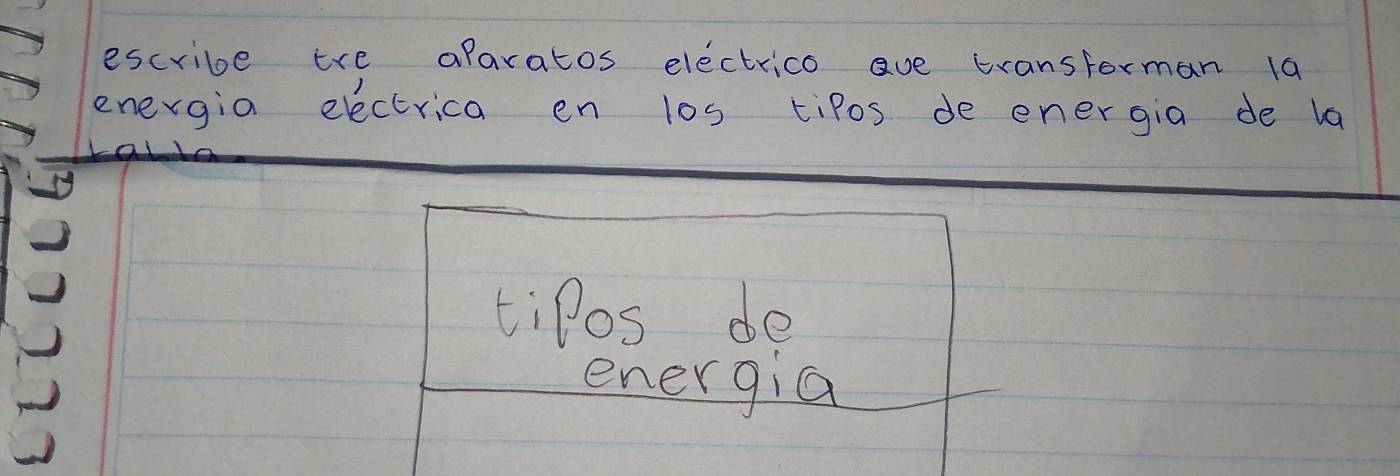 escribe tre aparatos eléctrico que transforman la
energia eléctrica en los tipos de energia de la
tabla.
tipos de
energia